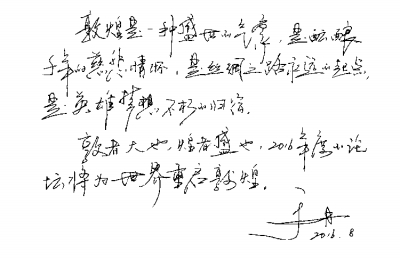 敦煌是一种盛世的气象，是酝酿
千年的慈悲情怀，是丝绸之路永远的起点，
是英雄梦想不朽的归宿。
敦者大也，煌者盛也，2016年度小论
坛将为世界重启敦煌。
于丹
2016.8